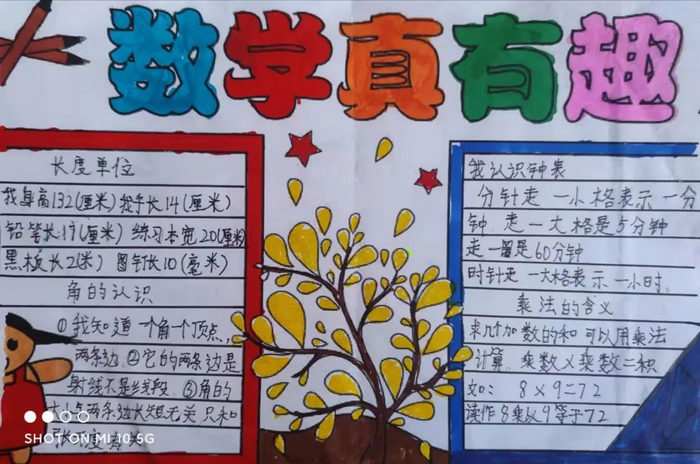 数学真有趣
长度单位
我身高132(厘米) 我手长14(厘米)
铅笔长17(厘米) 练习本宽20(厘米)
黑板长2(米) 图钉长10(毫米)
角的认识
①我知道一个角一个顶点,
两条边 ②它的两条边是
射线不是线段. ③角的
两条边长短无关 只和
我认识钟表
分针走一小格表示一分
钟 走一大格是5分钟
走一圈是60分钟
时针走一大格表示一小时.
乘法的含义
求几个加数的和可以用乘法
计算. 乘数×乘数=积
如: 8×9=72
读作8乘以9等于72
SHOT ON MI 10 5G